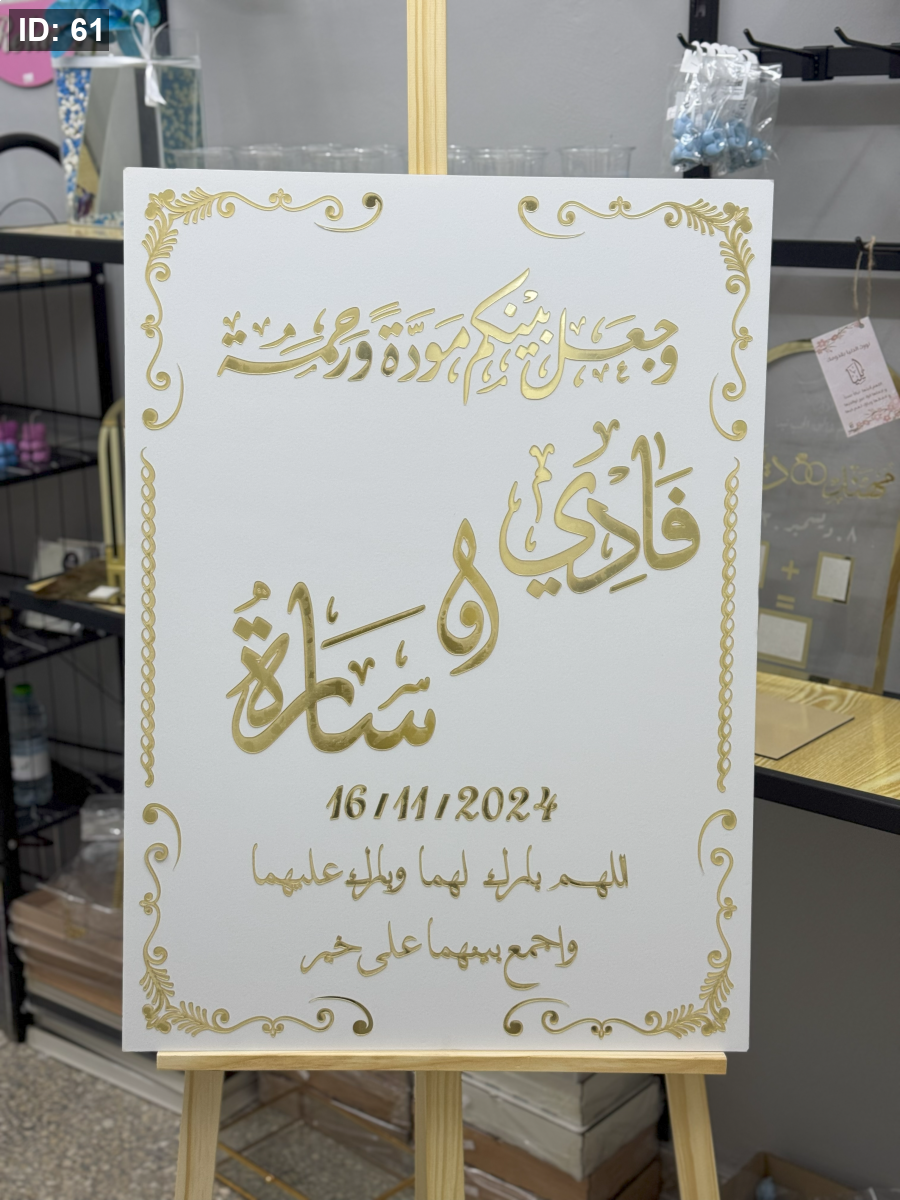 ID: 61
وجعل بينكم مودة ورحمة
فادي
و
سارة
16/11/2024
اللهم بارك لهما وبارك عليهما
واجمع بينهما على خير